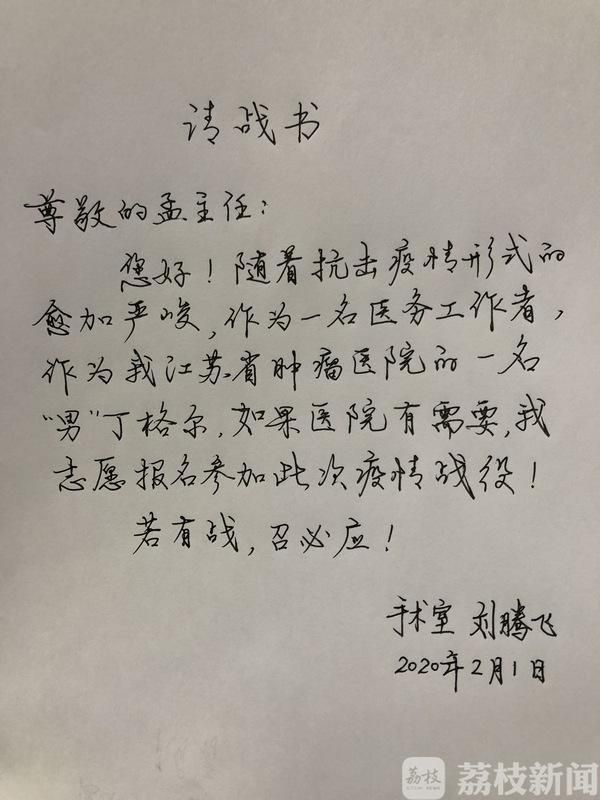 请战书
尊敬的孟主任：
您好！随着抗击疫情形式的
愈加严峻，作为一名医务工作者，
作为我江苏省肿瘤医院的一名
“男”丁格尔，如果医院有需要，我
志愿报名参加此次疫情战役！
若有战，召必应！
手术室 刘腾飞
2020年2月1日
荔枝 荔枝新闻